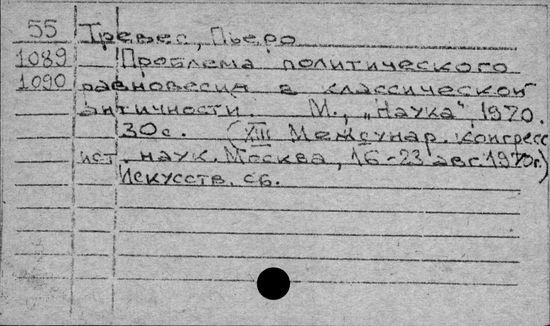 55 Тревес, Пьеро
1089 Проблема политического
1090 равновесия в классической
античности. М., „Наука", 1970.
30с. (XIII Междунар. конгресс
ист. наук. Москва, 16-23 авг. 1970г.)
Искусств. сб.